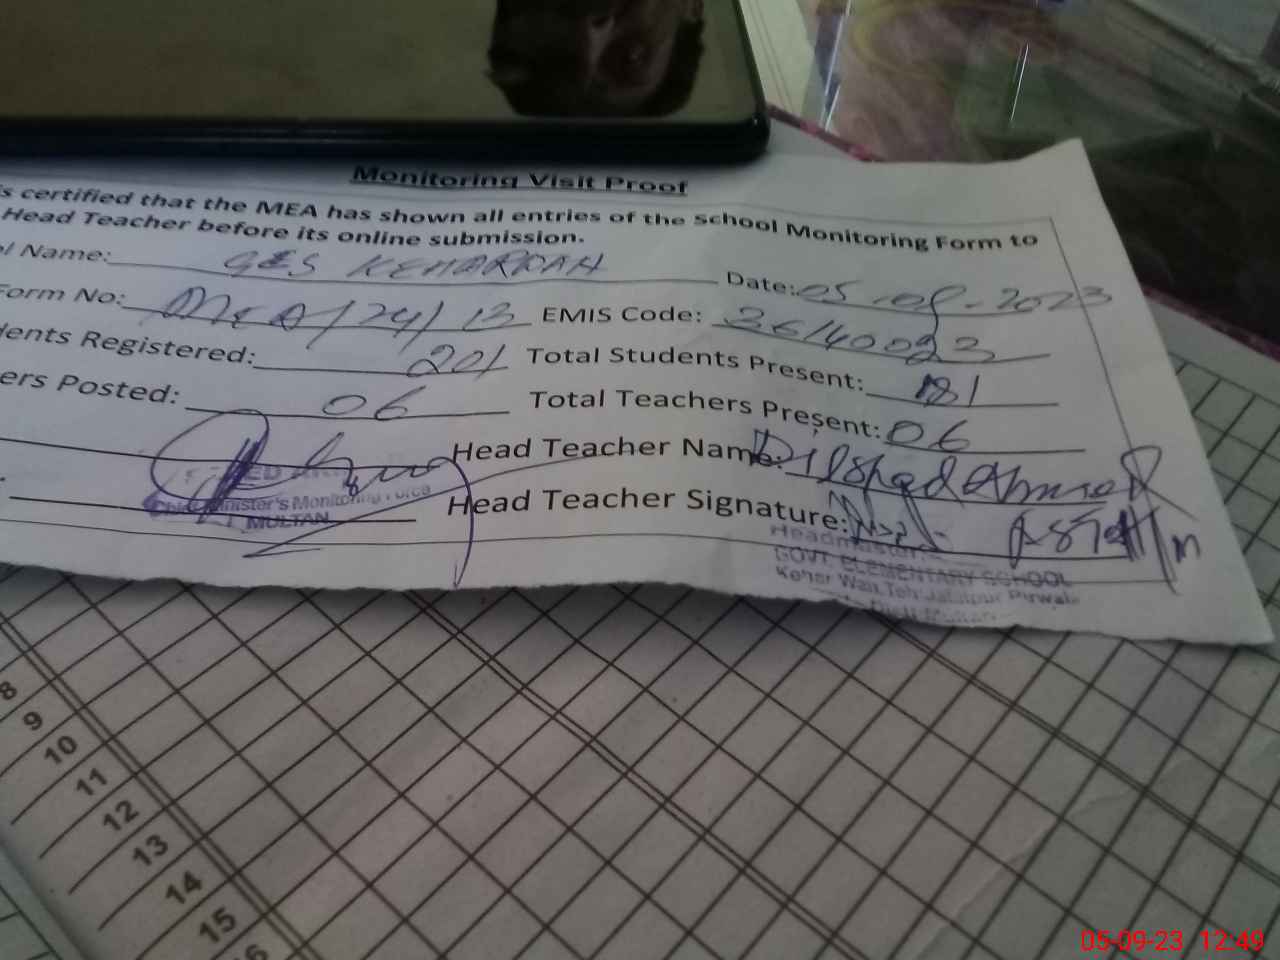 Monitoring Visit Proof
is certified that the MEA has shown all entries of the School Monitoring Form to
Head Teacher before its online submission.
ol Name: GES KEHARWAH Date: 05-09-2023
Form No: MEA/24/13 EMIS Code: 36140093
dents Registered: 201 Total Students Present: 181
ers Posted: 06 Total Teachers Present: 06
Head Teacher Name: Dilshad Ahmed
Chief Minister's Monitoring Force
MULTAN
Head Teacher Signature:
Headmaster
GOVT. ELEMENTARY SCHOOL
Kehar Wah Teh: Jalalpur Pirwala
Distt Multan
8
9
10
11
12
13
14
15
16
05-09-23 12:49